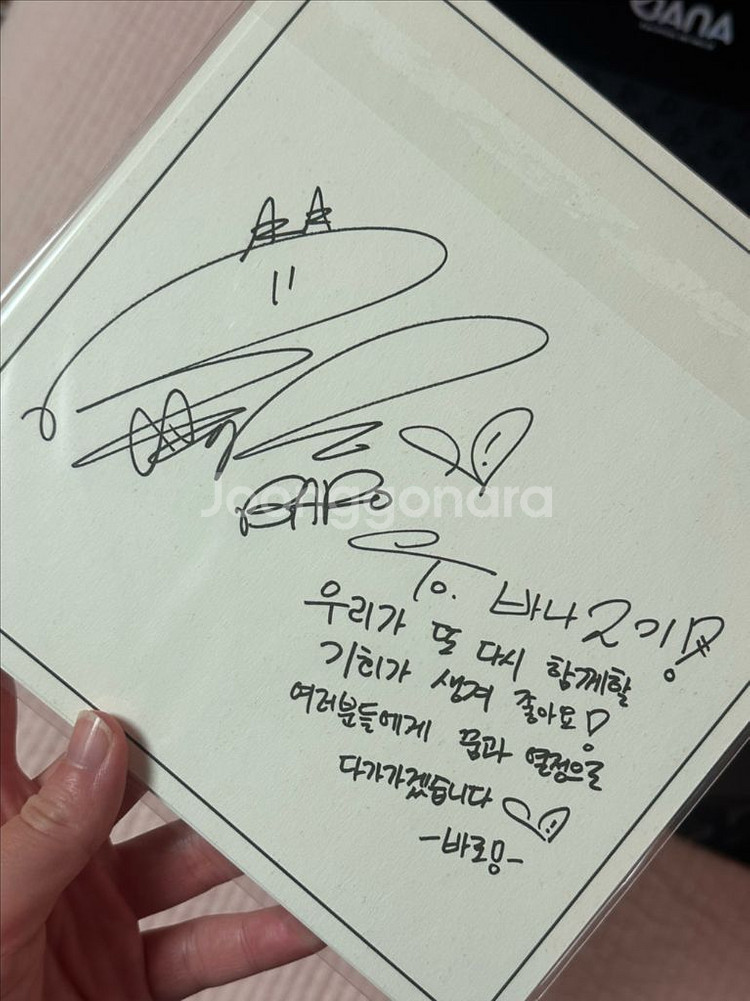 BANA
BARO
Joonggonara
To. 바나 2기!
우리가 또 다시 함께할
기회가 생겨 좋아요!
여러분들에게 꿈과 열정으로
다가가겠습니다
-바로!-